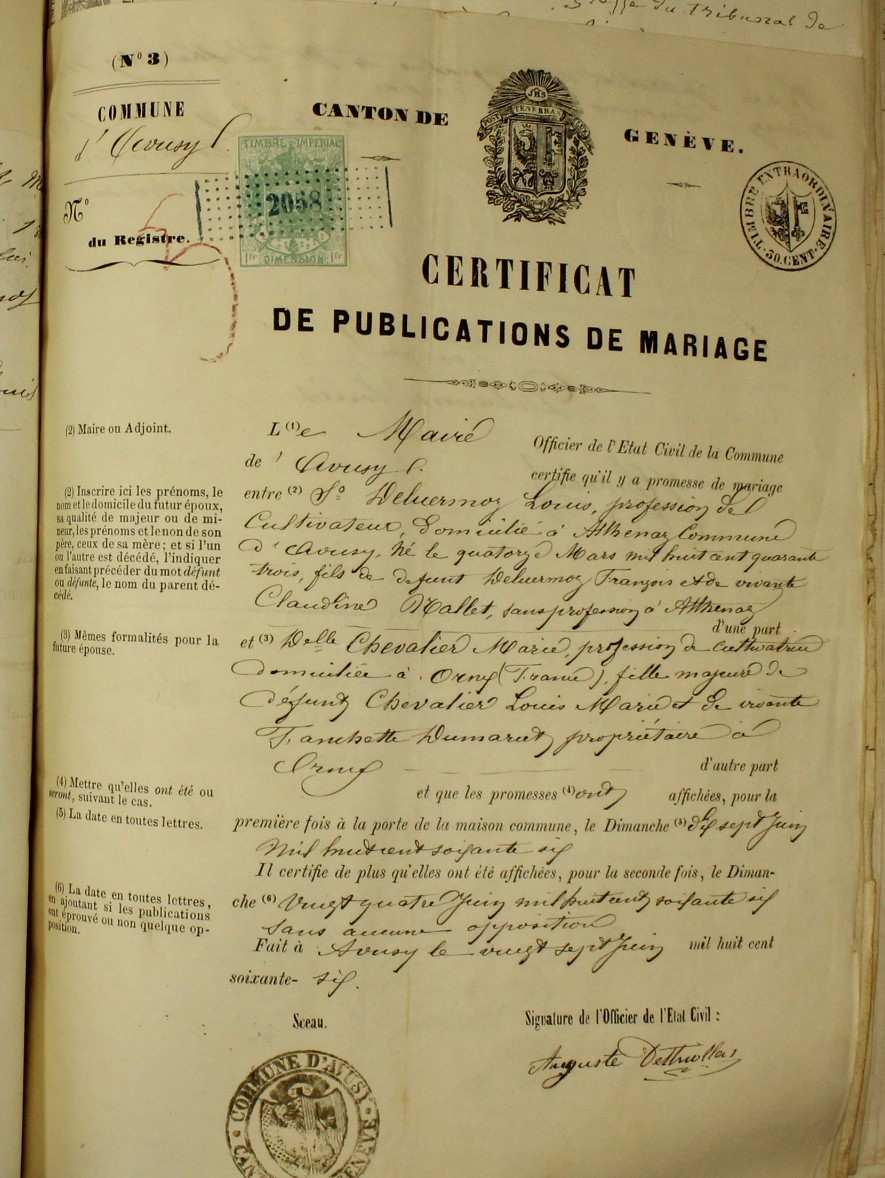 Greffe du Tribunal de
(N° 3)
COMMUNE
d'Avusy
N°
du Registre.
TIMBRE IMPÉRIAL
2058
1 fr DIMENSION 1 fr
CANTON DE
JHS
POST TENEBRAS
GENÈVE.
TIMBRE EXTRAORDINAIRE
30. CENT.
CERTIFICAT
DE PUBLICATIONS DE MARIAGE
(2) Maire ou Adjoint.
L(1)e Maire Officier de l'Etat Civil de la Commune
de d'Avusy certifie qu'il y a promesse de mariage
(2) Inscrire ici les prénoms, le
nom et le domicile du futur époux,
sa qualité de majeur ou de mi-
neur, les prénoms et le non de son
père, ceux de sa mère; et si l'un
ou l'autre est décédé, l'indiquer
en faisant précéder du mot défunt
ou défunte, le nom du parent dé-
cédé.
entre (2) Sr Deluermoz Louis, profession de
Cultivateur, Domicilié à Athenaz Commune
d'Avusy, né le quatorze Mars mil huit cent quarante
trois, fils de defunt Deluermoz François et de vivante
Claudine Mallet, sans profession à Athenaz
d'une part
(3) Mêmes formalités pour la
future épouse.
et (3) Delle Chevalier Marie, profession de Cultivatrice
domiciliée à (France), fille majeure de
défunt Chevalier Louis Marie et de vivante
Fanchette propriétaire à
d'autre part
(4) Mettre qu'elles ont été ou
seront, suivant le cas.
et que les promesses (4) ont affichées, pour la
(5) La date en toutes lettres.
première fois à la porte de la maison commune, le Dimanche (5) dix sept Juin
Mil huit cent soixante six
Il certifie de plus qu'elles ont été affichées, pour la seconde fois, le Diman-
(6) La date en toutes lettres,
en ajoutant si les publications
ont éprouvé ou non quelque op-
position.
che (6) Vingt quatre Juin mil huit cent soixante six
sans aucune opposition
Fait à Avusy le vingt sept Juin mil huit cent
soixante- six.
Sceau.
Signature de l'Officier de l'Etat Civil :
Auguste Dethiollaz
COMMUNE D'AVUSY
CANT. GENÈVE